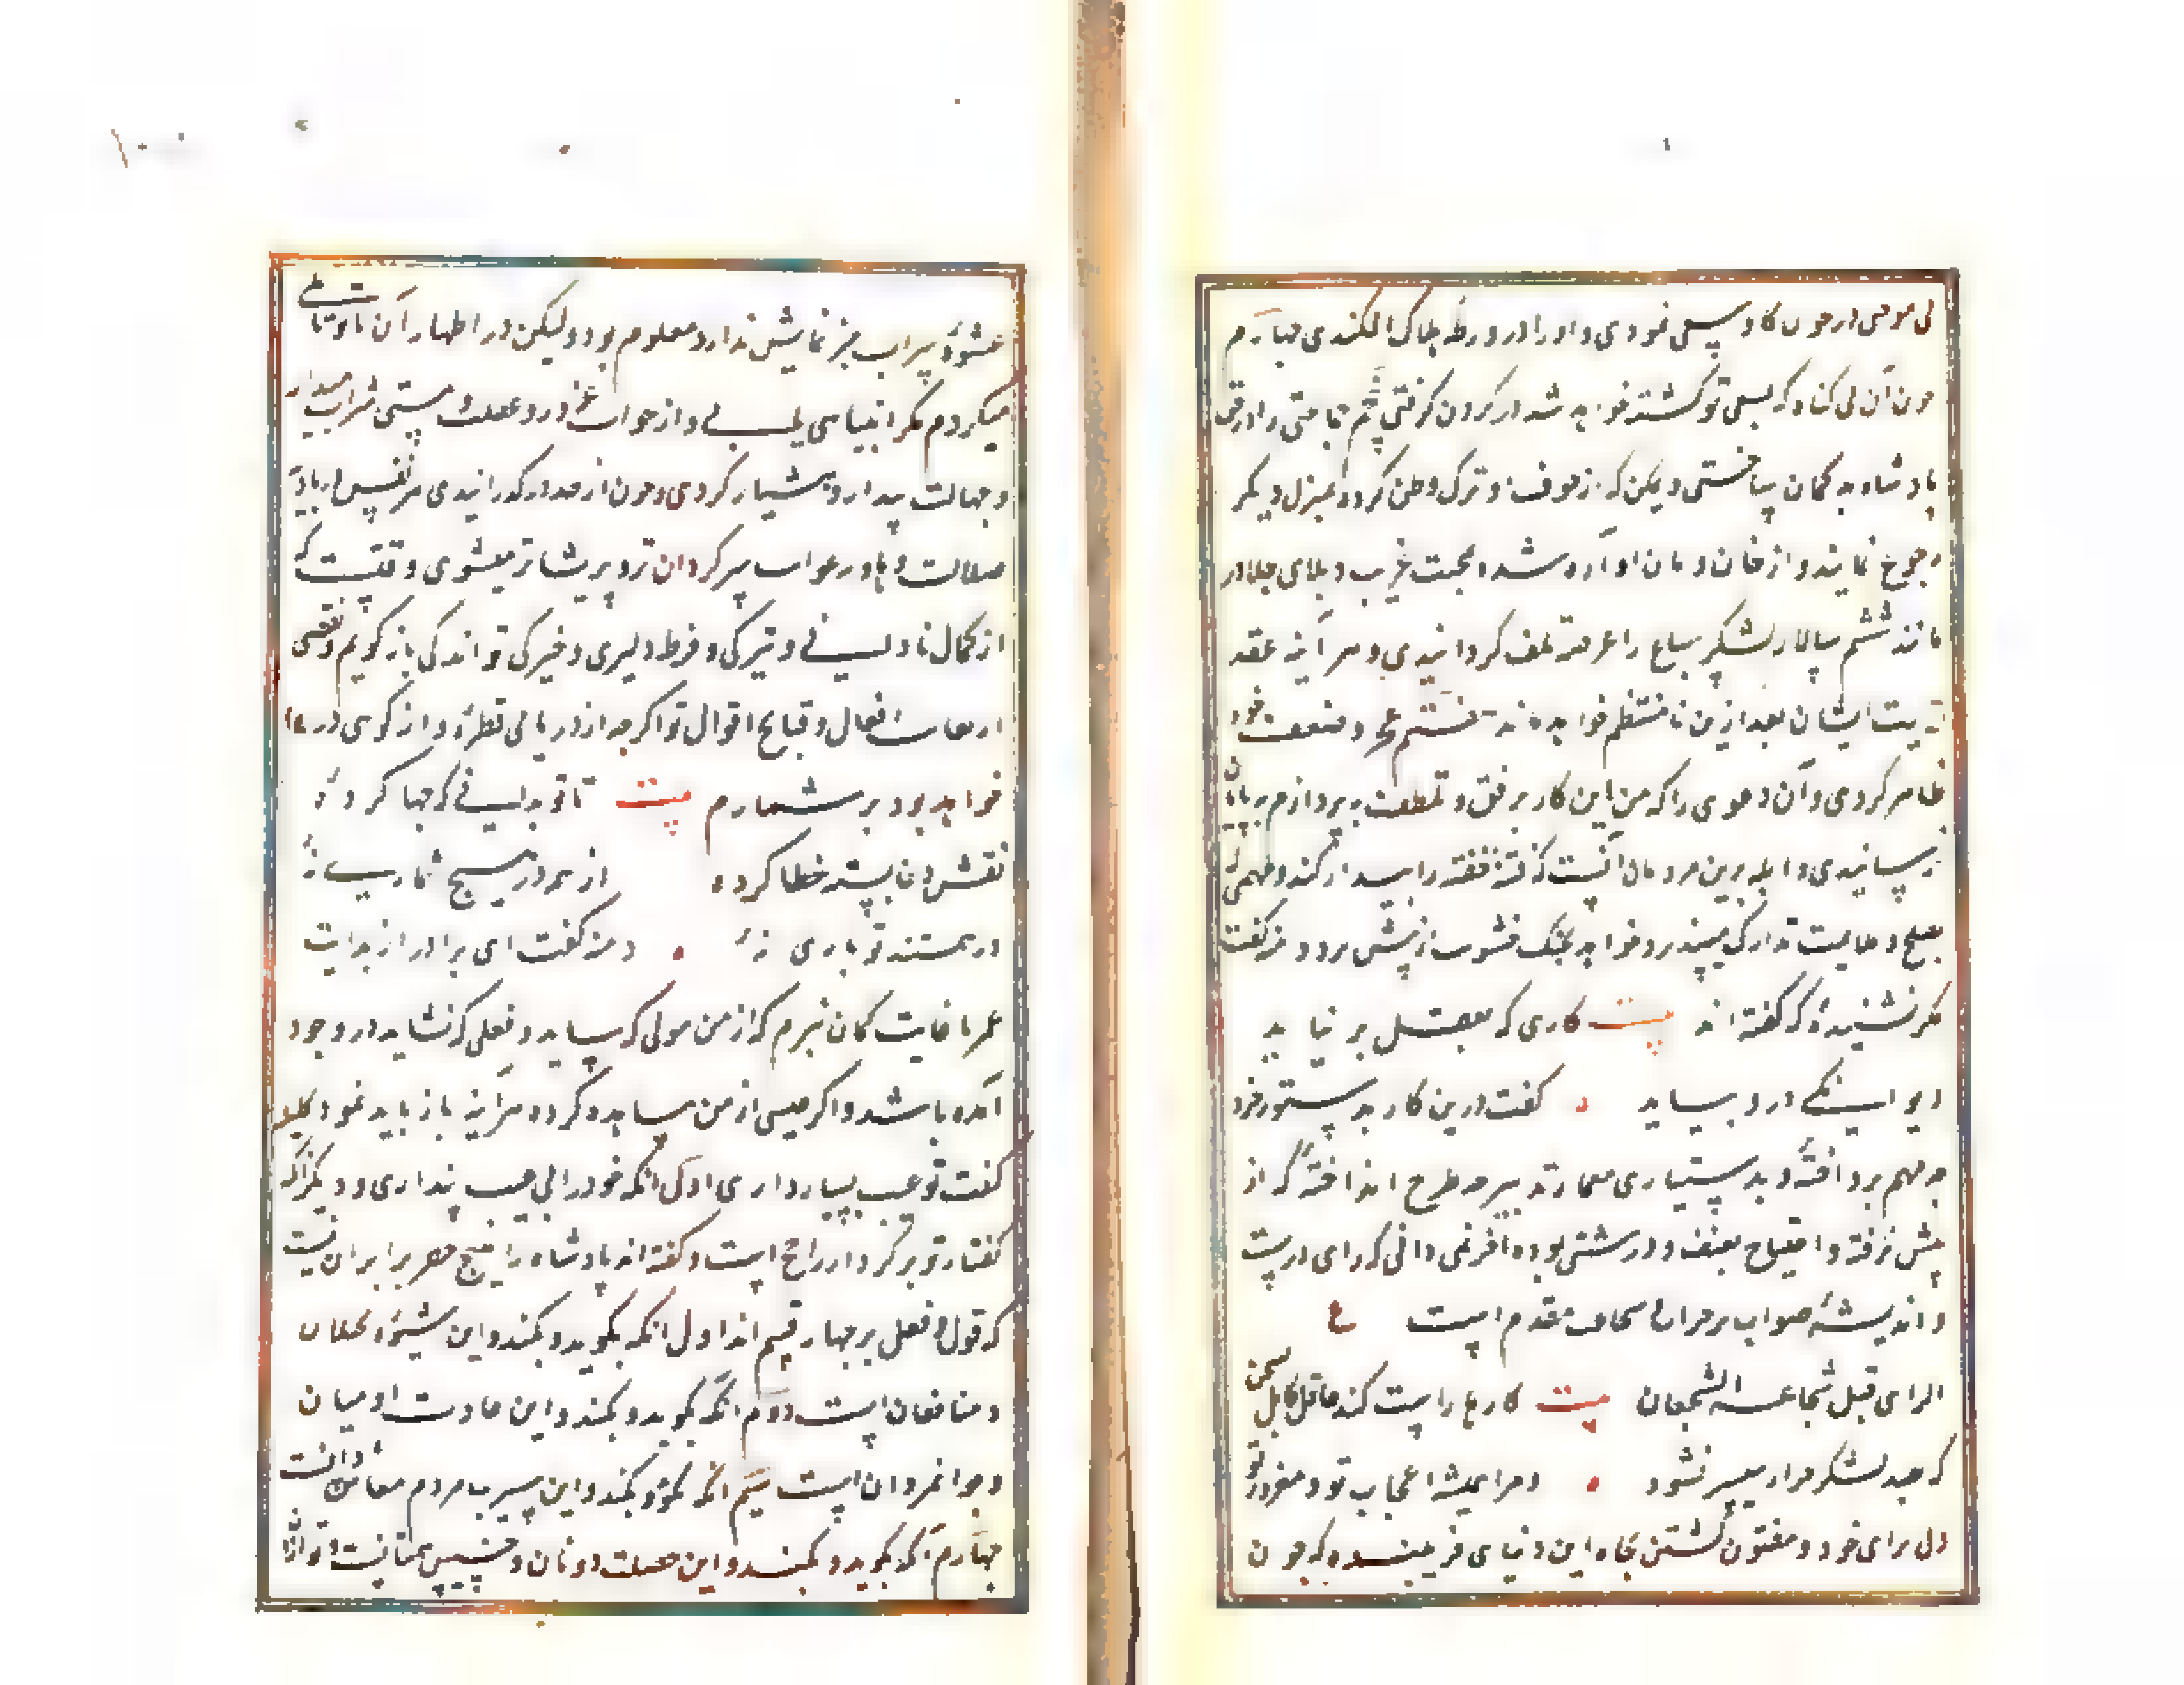 بی موجبی در خون گاو سعی نمودی و او را در ورطه هلاک افکندی چهارم
خون آن بی گناه که بسعی تو کشته خواهد شد در گردن گرفتی پنجم جماعتی را در حق
پادشاه بد گمان ساختی و یمکن که از خوف او ترک وطن کرده بمنزل دیگر
رجوع نمایند و از خان و مان آواره شده بمحنت غربت و بلای جلا در
مانند ششم سالار لشکر سباع را عرضه تلف گردانیدی و هر آینه عقد
جمعیت ایشان بعد ازین نا منتظم خواهد ماند هفتم عجز و ضعف خود
ظاهر کردی و آن دعوی را که من این کار برفق و تلطف بپردازم بپایان
نرسانیدی و ابله ترین مردمان آنست که فتنه خفته را بیدار کند و مهمی که
بصلح و ملایمت تدارک پذیرد خواهد بجنگ و خشونت از پیش برد دمنه گفت
مگر نشنیده که گفته اند بیت کاری که بعقل بر نیاید
دیوانگی در و بباید گفت درین کار بدستور خرد
چه مهم پرداخته و بدستیاری معمار تدبیر چه طرح انداخته که از
پیش نرفته و احتیاج بعنف و درشتی بوده آخر نمی دانی که رای درست
و اندیشه صواب بر جرأت و شجاعت مقدم است ع
الرای قبل شجاعة الشجعان بیت کارها راست کند عاقل کامل بسخن
که بصد لشکر جرار میسر نشود و مرا همیشه اعجاب تو و مغرور بودن تو
برای خود و مفتون گشتن بجاه این دنیای فریبنده که چون
عشوهٔ سراب جز نمایش ندارد معلوم بود ولیکن در اظهار آن با تو تأملی
میکردم مگر انتباهی یابی و از خواب غرور و غفلت و مستی شراب پندار
و جهالت بیدار و هشیار گردی و چون از حد در گذرانیدی و هر نفس در بادیه
ضلالت و هاویه غوایت سرگردان تر و پریشان تر میشوی وقتست که
از کمال نادانی و تیرگی و فرط دلیری و خیرگی تو اندکی باز گویم و بعضی
از معایب افعال و قبایح اقوال تو اگر چه از دریائی قطره و از کوهی ذره
خواهد بود بر شمارم بیت تا تو بدانی که چها کرده
نقش دغا بسته خطا کرده از همه در هیچ شماری نه
در همه هستند تو باری نه دمنه گفت ای برادر از بدایت
عمر تا غایت گمان نبرم که از من قولی که نباید و فعلی که نشاید در وجود
آمده باشد و اگر عیبی از من مشاهده کرده هر آینه باز باید نمود کلیله
گفت تو عیب بسیار داری اول آنکه خود را بی عیب پنداری و دیگر آنکه
گفتار تو بر کردار راجح است و گفته اند پادشاه را هیچ خطر برابر آن نیست
که قول و فعل بر چهار قسم اند اول آنکه بگوید و نکند و این شیوه بخیلان
و منافقان است دوم آنکه نگوید و بکند و این عادت ارمیان
و جوانمردان است سیم آنکه بگوید و بکند و این سیرت مردم معاش دانست
چهارم آنکه نگوید و نکند و این خصلت دونان و خسیس همتانست و تو ازان